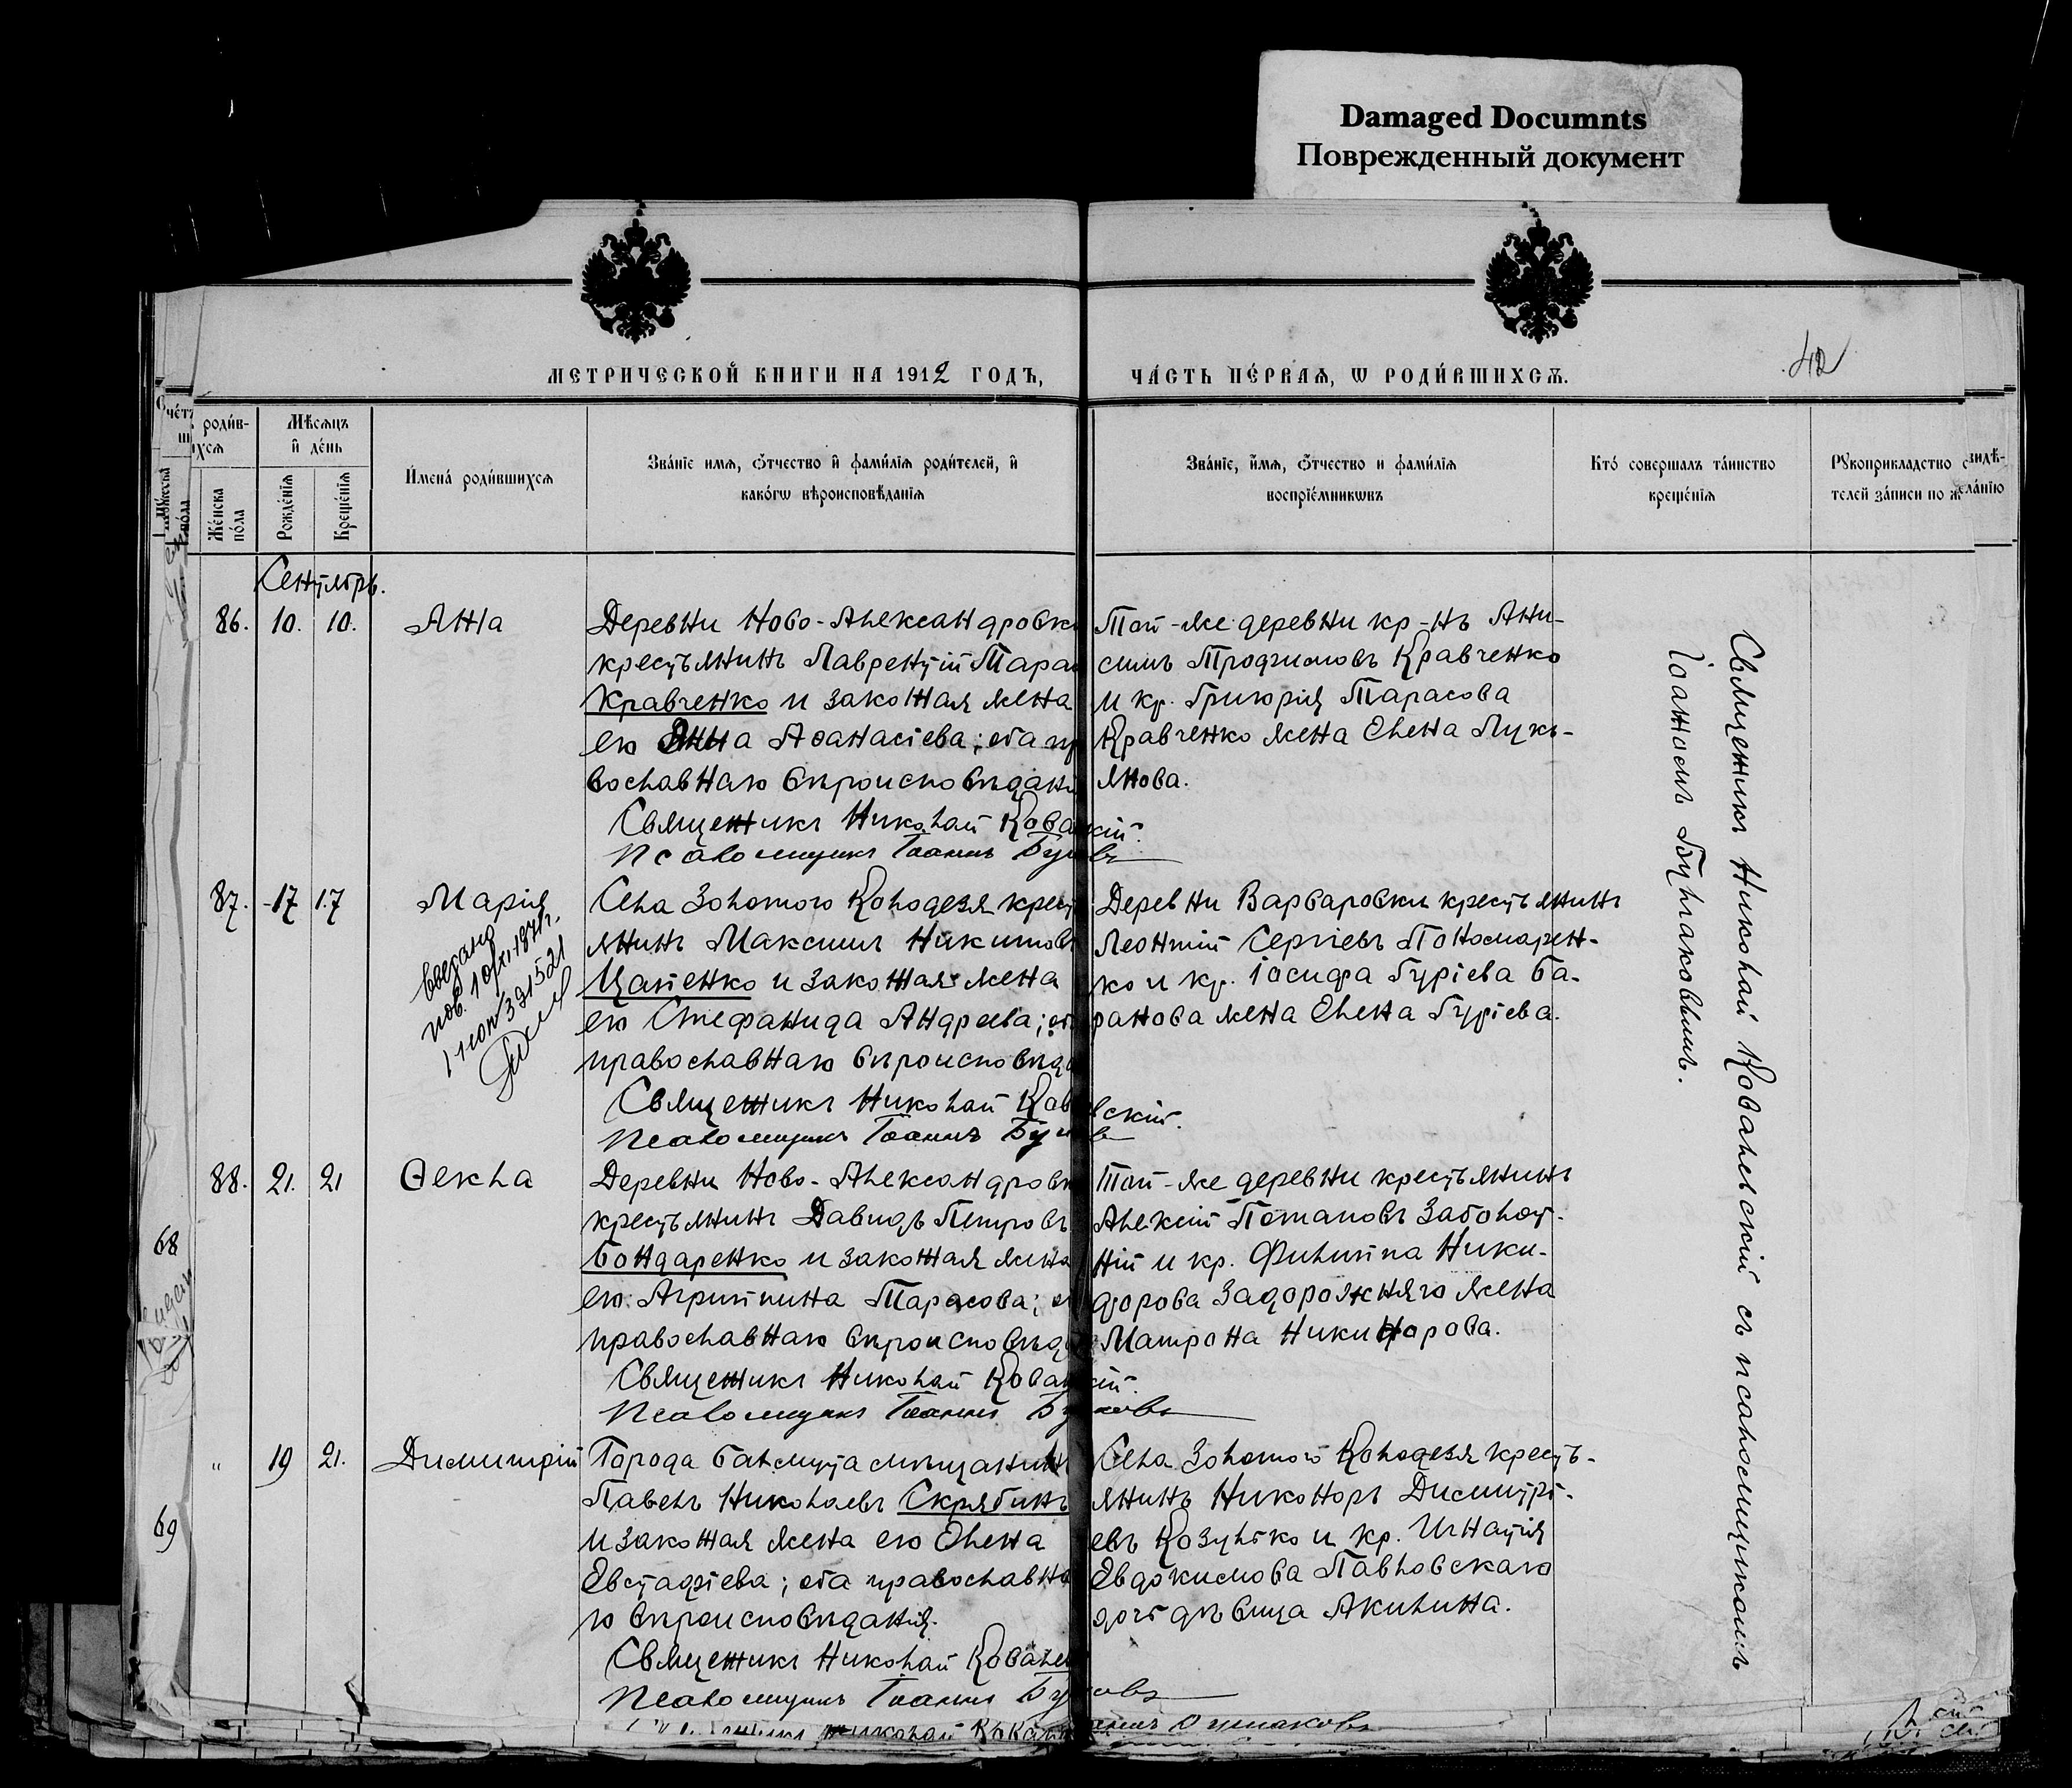 Damaged Documnts
Поврежденный документ
МЕТРИЧЕСКОЙ КНИГИ НА 1912 ГОДЪ,
ЧА́СТЬ ПЕ́РВАЯ, Ѡ РОДИ́ВШИХСѦ.
42
роди́в-
ихсѧ
Мѣсѧцъ
и҆ де́нь
Же́нска по́ла
Рожде́нїѧ
Креще́нїѧ
И҆мена̀ роди́вшихсѧ
Зва́нїе имѧ, ѻ҆́тчество и҆ фами́лїѧ роди́телей, и҆
како́гѡ вѣроисповѣ́данїѧ
Зва́нїе, и҆́мѧ, ѻ҆́тчество и фами́лїѧ
воспрїе́мникѡвъ
Кто́ совершалъ та́инство
креще́нїѧ
Рꙋкоприкладство свидѣ-
телей за́писи по жела́нїю
Сентябрь.
86. 10. 10. Анна
Деревни Ново-Александровк
крестьянинъ Лаврентій Тарас
Кравченко и законная жена
его Анна Аѳанасіева; оба пр
вославнаго вѣроисповѣдані
Священникъ Николай Кова кій.
Псаломщикъ Іоаннъ Бу въ
Той-же деревни кр-нъ Ани-
симъ Трофимовъ Кравченко
и кр. Григорія Тарасова
Кравченко жена Елена Лукь-
янова.
87. 17 17 Марія
Села Золотого Колодезя крест
янинъ Максимъ Никитовъ
Цапенко и законная жена
его Стефанида Андреева; об
православнаго вѣроисповѣд
Священникъ Николай Ков вскій.
Псаломщикъ Іоаннъ Бу въ
Деревни Варваровки крестьянинъ
Леонтій Сергіевъ Пономарен-
ко и кр. Іосифа Гуріева Ба-
ранова жена Елена Гуріева.
88. 21. 21 Ѳекла
Деревни Ново-Александровк
крестьянинъ Давидъ Петровъ
Бондаренко и законная жена
его Агриппина Тарасова; об
православнаго вѣроисповѣд
Священникъ Николай Кова кій.
Псаломщикъ Іоаннъ Бу ковъ
Той-же деревни крестьянинъ
Алексій Потаповъ Заболот-
ній и кр. Филиппа Ники-
форова Задорожняго жена
Матрона Никифорова.
68
" 19 21. Димитрій
Города Бахмута мѣщанинъ
Павелъ Николаевъ Скрябинъ
и законная жена его Елена
Евстафіева; оба православна
го вѣроисповѣданія.
Священникъ Николай Ковалев
Псаломщикъ Іоаннъ Бу ковъ
Села Золотого Колодезя кресть-
янинъ Никоноръ Димитрі-
евъ Козулько и кр. Игнатія
Евдокимова Павловскаго
дочь дѣвица Акилина.
69
Священникъ Николай Ковалевскій съ псаломщикомъ
Іоанномъ Булгаковымъ.